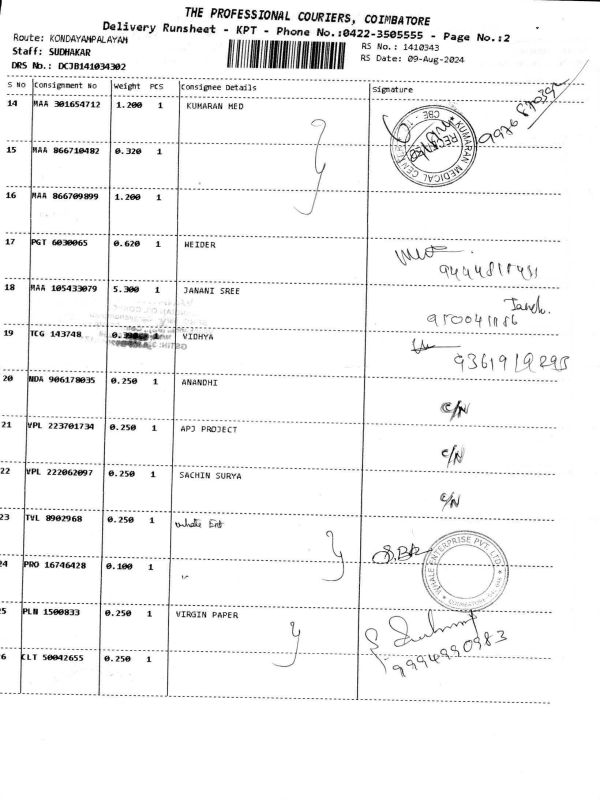 THE PROFESSIONAL COURIERS, COIMBATORE
Delivery Runsheet - KPT - Phone No.:0422-3505555 - Page No.:2
Route: KONDAYAMPALAYAM
RS No.: 1410343
Staff: SUDHAKAR
RS Date: 09-Aug-2024
DRS No.: DCJB141034302
S NO Consignment No Weight PCS Consignee Details Signature
14 MAA 301654712 1.200 1 KUMARAN MED
KUMARAN MEDICAL CENTRE
CBE
15 MAA 866710482 0.320 1
16 MAA 866709899 1.200 1
17 PGT 6030065 0.620 1 WEIDER
18 MAA 105433079 5.300 1 JANANI SREE
19 TCG 143748 1 VIDHYA
20 NDA 906178035 0.250 1 ANANDHI
C/N
21 VPL 223701734 0.250 1 APJ PROJECT
C/N
22 VPL 222062097 0.250 1 SACHIN SURYA
C/N
23 TVL 8902968 0.250 1 Whale Ent
WHALE ENTERPRISE PVT. LTD.
24 PRO 16746428 0.100 1 "
25 PLN 1500833 0.250 1 VIRGIN PAPER
9994990983
26 CLT 50042655 0.250 1